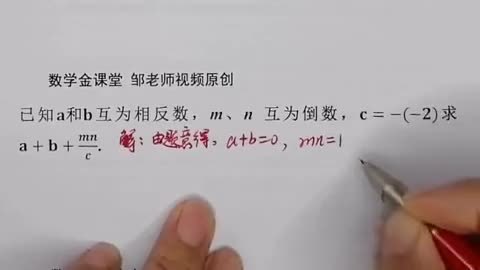 数学金课堂 邹老师视频原创
已知a和b互为相反数，m、n 互为倒数，c = −(−2)求
a + b + mn/c. 解：由题意得，a+b=0，mn=1